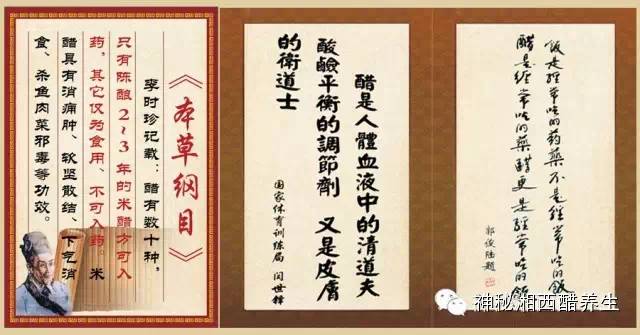 《本草纲目》
李时珍记载：醋有数十种，
只有陈酿2~3年的米醋方可入
药，其它仅为食用、不可入药。米
醋具有消痈肿、软坚散结、下气消
食、杀鱼肉菜邪毒等功效。
醋是人體血液中的清道夫
酸鹼平衡的調節劑 又是皮膚
的衛道士
国家体育训练局 闫世铎
飯是經常吃的药藥不是經常吃的飯
醋是經常吃的藥醋更是經常吃的飯
郭俊陆题
神秘湘西醋养生